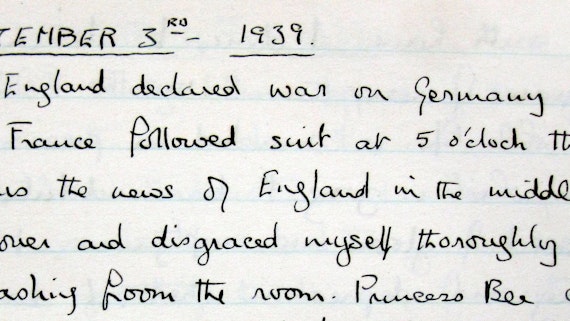 TEMBER 3RD - 1939.
England declared war on Germany
France followed suit at 5 o'cloch th
us the news of England in the middle
over and disgraced myself thoroughly
ashing from the room. Princess Bea